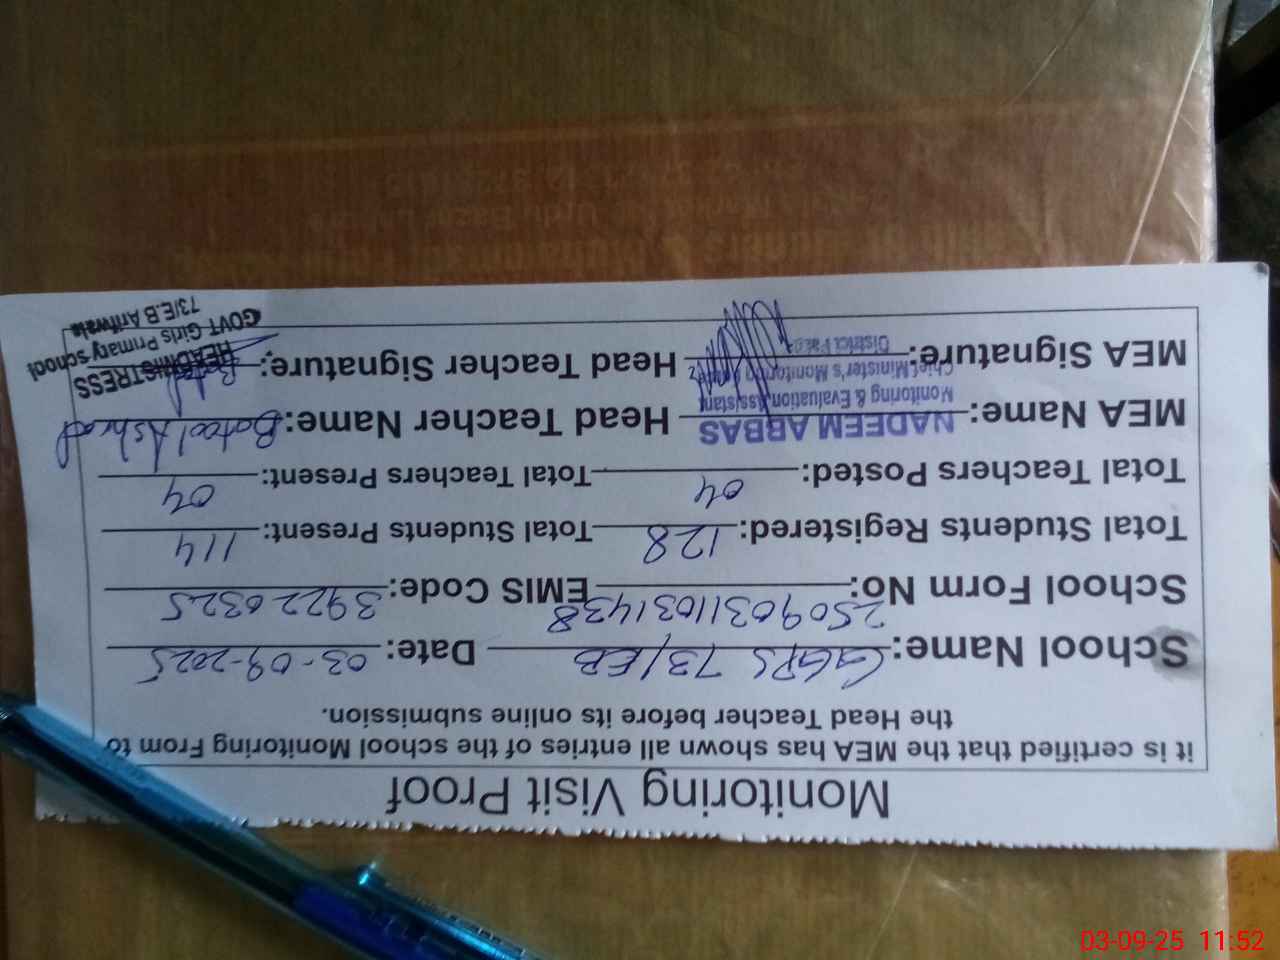 Monitoring Visit Proof
it is certified that the MEA has shown all entries of the school Monitoring From to
the Head Teacher before its online submission.
School Name: GGPS 73/EB Date: 03-09-2025
School Form No: 25090311031438 EMIS Code: 39220325
Total Students Registered: 128 Total Students Present: 114
Total Teachers Posted: 04 Total Teachers Present: 04
MEA Name: NADEEM ABBAS Head Teacher Name: Batool Ashraf
Monitoring & Evaluation Assistant
Chief Minister's Monitoring
MEA Signature: District Head Teacher Signature:
HEADMISTRESS
GOVT Girls Primary school
73/E.B Arifwala
03-09-25 11:52